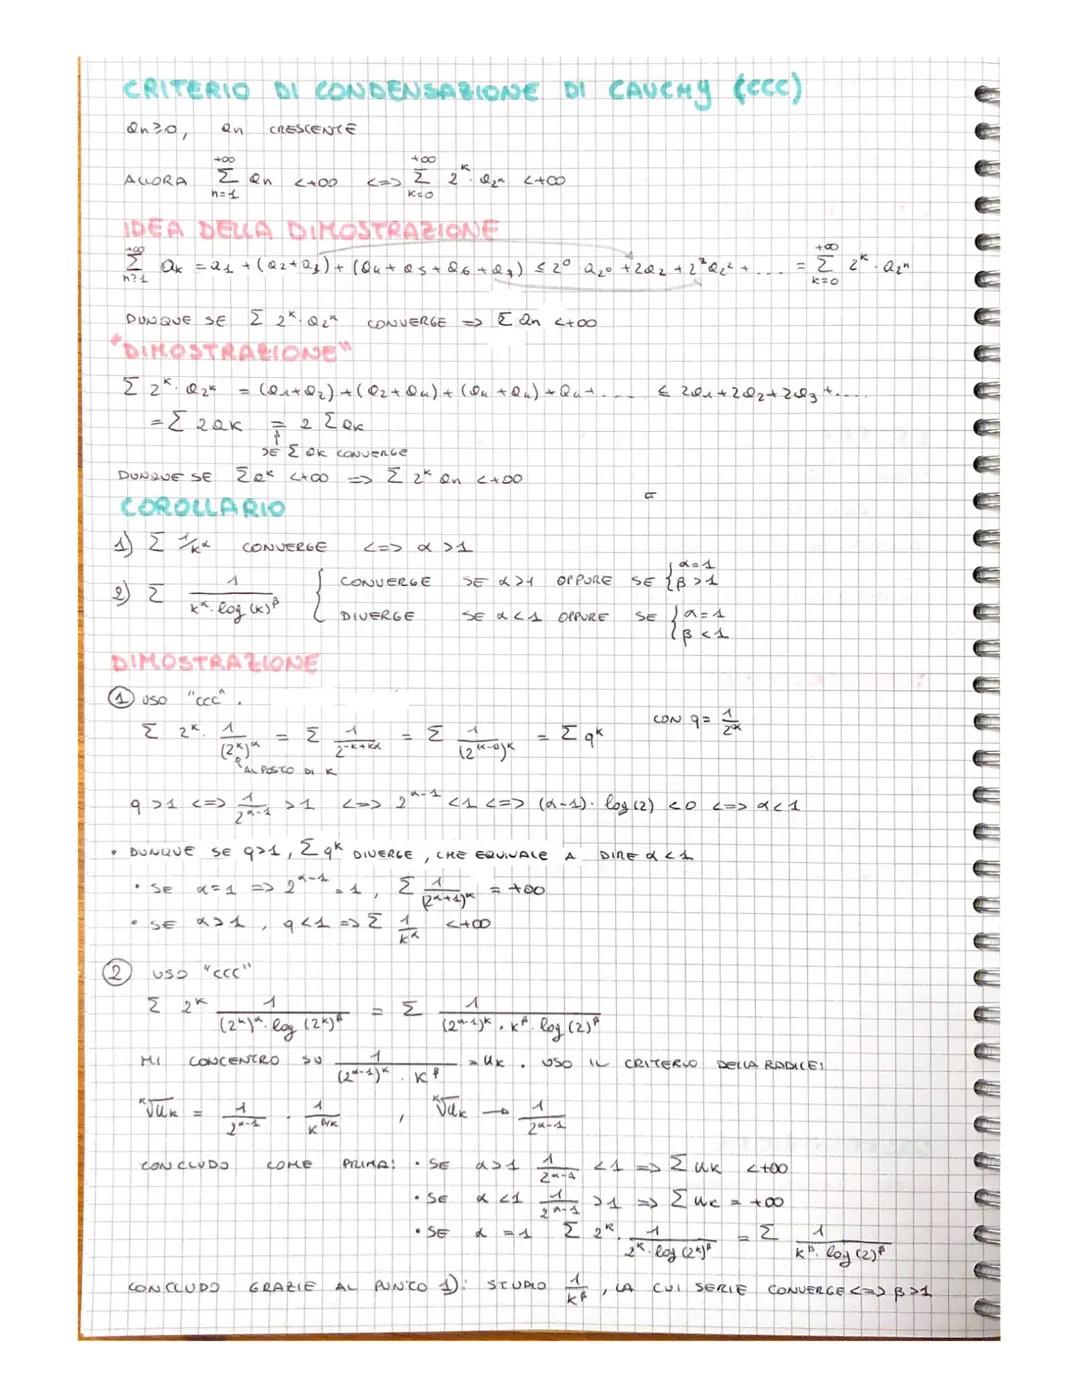 CRITERIO DI CONDENSAZIONE DI CAUCHY (CCC)
an≥0, an CRESCENTE
ALLORA \sum_{n=1}^{+∞} an <+∞ <=> \sum_{k=0}^{+∞} 2^k · a_{2^n} <+∞
IDEA DELLA DIMOSTRAZIONE
\sum_{n≥1}^{+∞} ak = a1 + (a2+a3) + (a4+a5+a6+a7) ≤ 2^0 a_{2^0} + 2a2 + 2^2 a_{2^2} + .... = \sum_{k=0}^{+∞} 2^k · a_{2^n}
DUNQUE SE Σ 2^k · a_{2^k} CONVERGE => Σ an <+∞
"DIMOSTRAZIONE"
Σ 2^k · a_{2^k} = (a1+a2) + (a2+a4) + (a4+a4) + a4+.... ≤ 2a1+2a2+2a3+....
= Σ 2ak = 2 Σ ak
↑
SE Σ ak CONVERGE
DUNQUE SE Σ a^k <+∞ => Σ 2^k an <+∞
COROLLARIO
1) Σ 1/k^α CONVERGE <=> α >1
2) Σ 1/(k^α · log(k)^β) { CONVERGE SE α>1 OPPURE SE { α=1 β>1
DIVERGE SE α<1 OPPURE SE { α=1 β<1
DIMOSTRAZIONE
① USO "CCC".
Σ 2^k · 1/(2^k)^α = Σ 1/2^{-k+kα} = Σ 1/(2^{(α-1)})^k = Σ q^k CON q = 1/2^α
AL POSTO DI K
q >1 <=> 1/2^{α-1} >1 <=> 2^{α-1} <1 <=> (α-1)· log(2) <0 <=> α<1
• DUNQUE SE q>1, Σ q^k DIVERGE, CHE EQUIVALE A DIRE α<1
• SE α=1 => 2^{α-1} = 1, Σ 1/(2^{α+1})^k = +∞
• SE α>1, q<1 => Σ 1/k^α <+∞
② USO "CCC"
Σ 2^k 1/((2^k)^α · log(2^k)^β) = Σ 1/((2^{α-1})^k · k^β · log(2)^β)
MI CONCENTRO SU 1/((2^{α-1})^k · k^β) = uk. USO IL CRITERIO DELLA RADICE:
\sqrt[k]{uk} = 1/2^{α-1} · 1/k^{β/k}, \sqrt[k]{uk} → 1/2^{α-1}
CONCLUDO COME PRIMA: • SE α>1 1/2^{α-1} <1 => Σ uk <+∞
• SE α <1 1/2^{α-1} >1 => Σ uk = +∞
• SE α =1 Σ 2^k · 1/(2^k · log(2^k)^β) = Σ 1/(k^β · log(2)^β)
CONCLUDO GRAZIE AL PUNTO 1): STUDIO 1/k^β, LA CUI SERIE CONVERGE <=> β>1